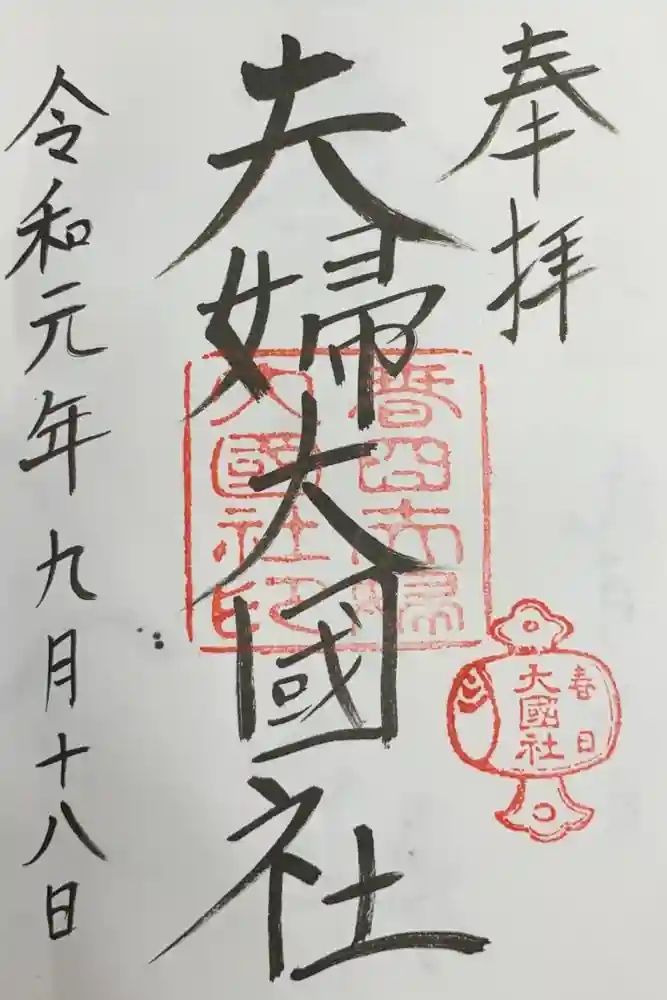 奉拝
夫婦大國社
春日夫婦
大國社印
春日
大國社
令和元年九月十八日